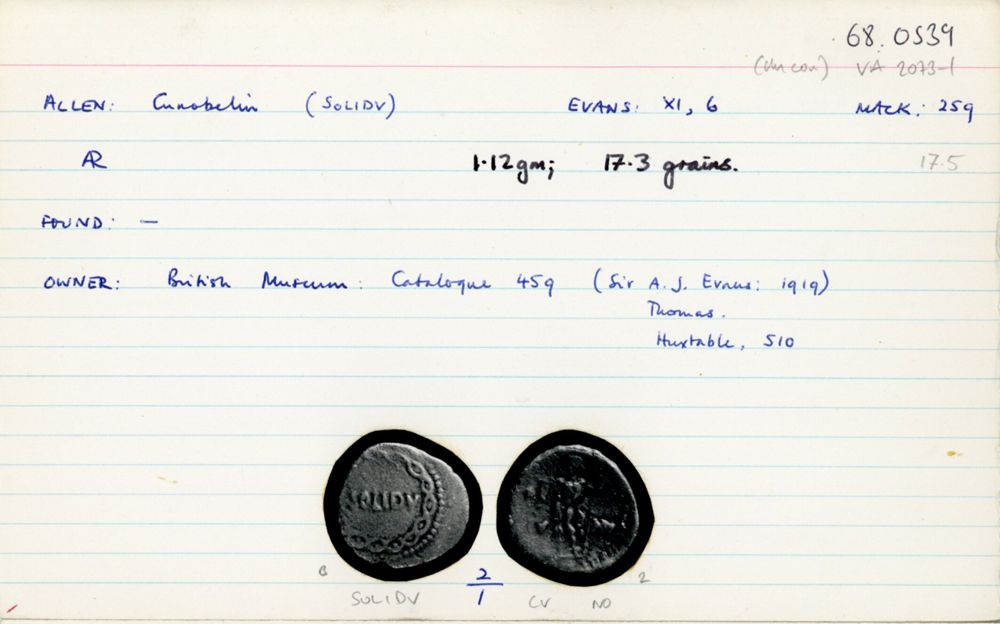 68.0539
(Uncon) VA 2073-1
ALLEN: Cunobelin (SOLIDV) EVANS: XI, 6 MACK: 259
AR 1.12gm; 17.3 grains. 17.5
FOUND: —
OWNER: British Museum: Catalogue 459 (Sir A. J. Evans: 1919)
Thomas.
Huxtable, 510
SOLIDV
B 2 2
SOLIDV 1 CV NO